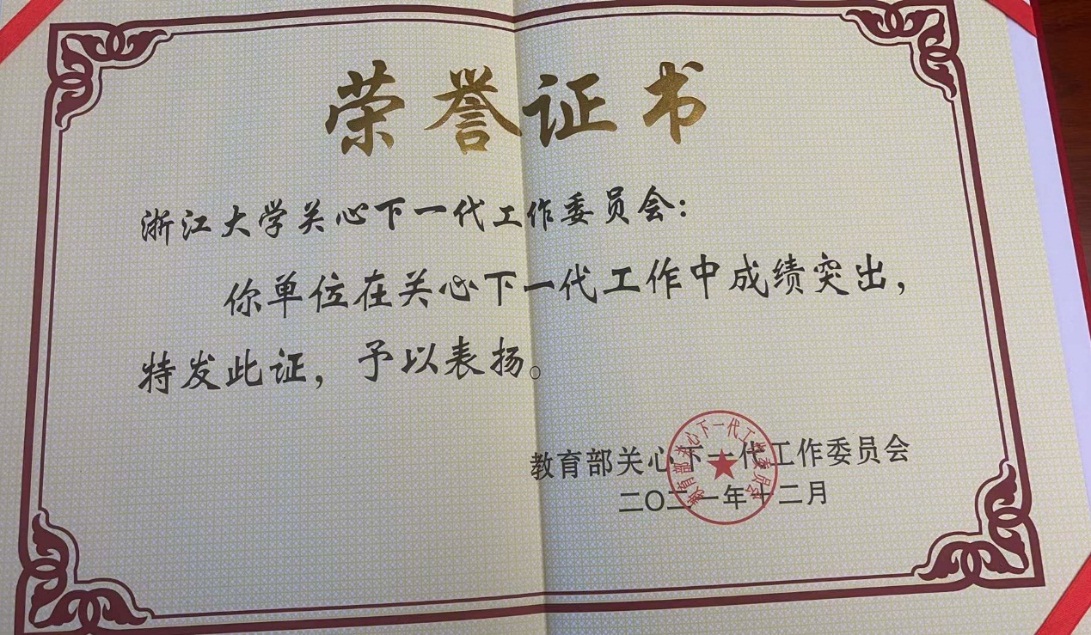 荣誉证书
浙江大学关心下一代工作委员会：
你单位在关心下一代工作中成绩突出，
特发此证，予以表扬。
教育部关心下一代工作委员会
二〇二一年十二月
教育部关心下一代工作委员会